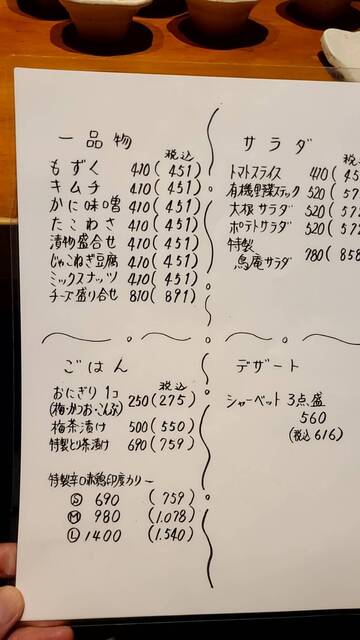 一品物
税込
もずく 410(451)
キムチ 410(451)
かに味噌 410(451)
たこわさ 410(451)
漬物盛合せ 410(451)
じゃこねぎ豆腐 410(451)
ミックスナッツ 410(451)
チーズ盛り合せ 810(891)
サラダ
税込
トマトスライス 410(45
有機野菜スティック 520(57
大根サラダ 520(57
ポテトサラダ 520(572
特製
鳥庵サラダ 780(858
ごはん
税込
おにぎり 1コ 250(275)
(梅・かつお・こんぶ)
梅茶漬け 500(550)
特製とり茶漬け 690(759)
特製辛口赤鶏印度カリー
Ⓢ 690 (759)
Ⓜ 980 (1.078)
Ⓛ 1400 (1.540)
デザート
シャーベット 3点盛
560
(税込 616)